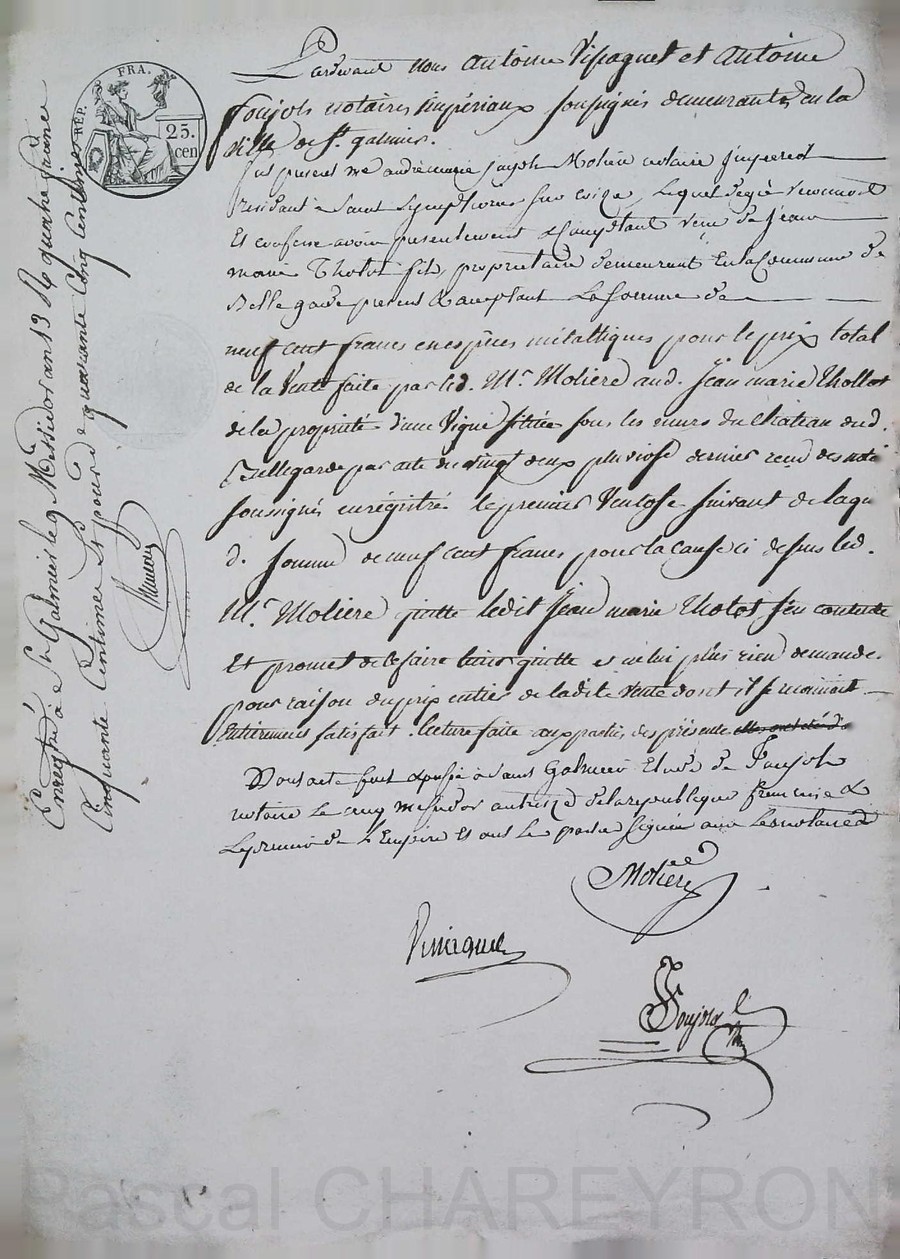 Pardevant nous Antoine Vissaguet et Antoine
Poujols notaires impériaux soussignés demeurants en la
ville de St. galmier.
fut present me andré marie joseph Molière notaire Imperial
residant à Saint Symphorien sur coize, lequel de gré reconnoit
Et confesse avoir presentement & comptant reçu de Jean
marie Tholot fils, proprietaire demeurant En la Commune de
Bellegarde present & acceptant La somme de
neuf cent francs en espèces métalliques pour le prix total
de la Vente faite par led. Mr. Moliere aud. Jean marie Thollot
de la propriété d'une Vigne située sous les murs du Chateau dud.
Bellegarde par acte du vingt deux pluviose dernier reçu des not.
soussignés enrégistré le premier Ventose suivant de laqu
d. somme de neuf cent francs pour la cause ci dessus led.
Mr. Moliere quitte ledit Jean marie Tholot s'en contente
Et promet de le faire tenir quitte et ne lui plus rien demander
pour raison du prix entier de ladite vente dont il se
Entierement satisfait. lecture faite aux parties des présente
Dont acte fait & passé à Saint Galmier Etude de Poujols
notaire le cinq messidor an treize de la republique francaise &
Le premier de L'Empire Et ont les parties signé avec Les notaires
Molière
Poujols
Enregté à St Galmier le 9 Messidor an 13 Rç quatre francs
Cinquante Centimes et pour dme quarante Cinq Centimes
RÉP. FRA.
25.
cen
Pascal CHAREYRON